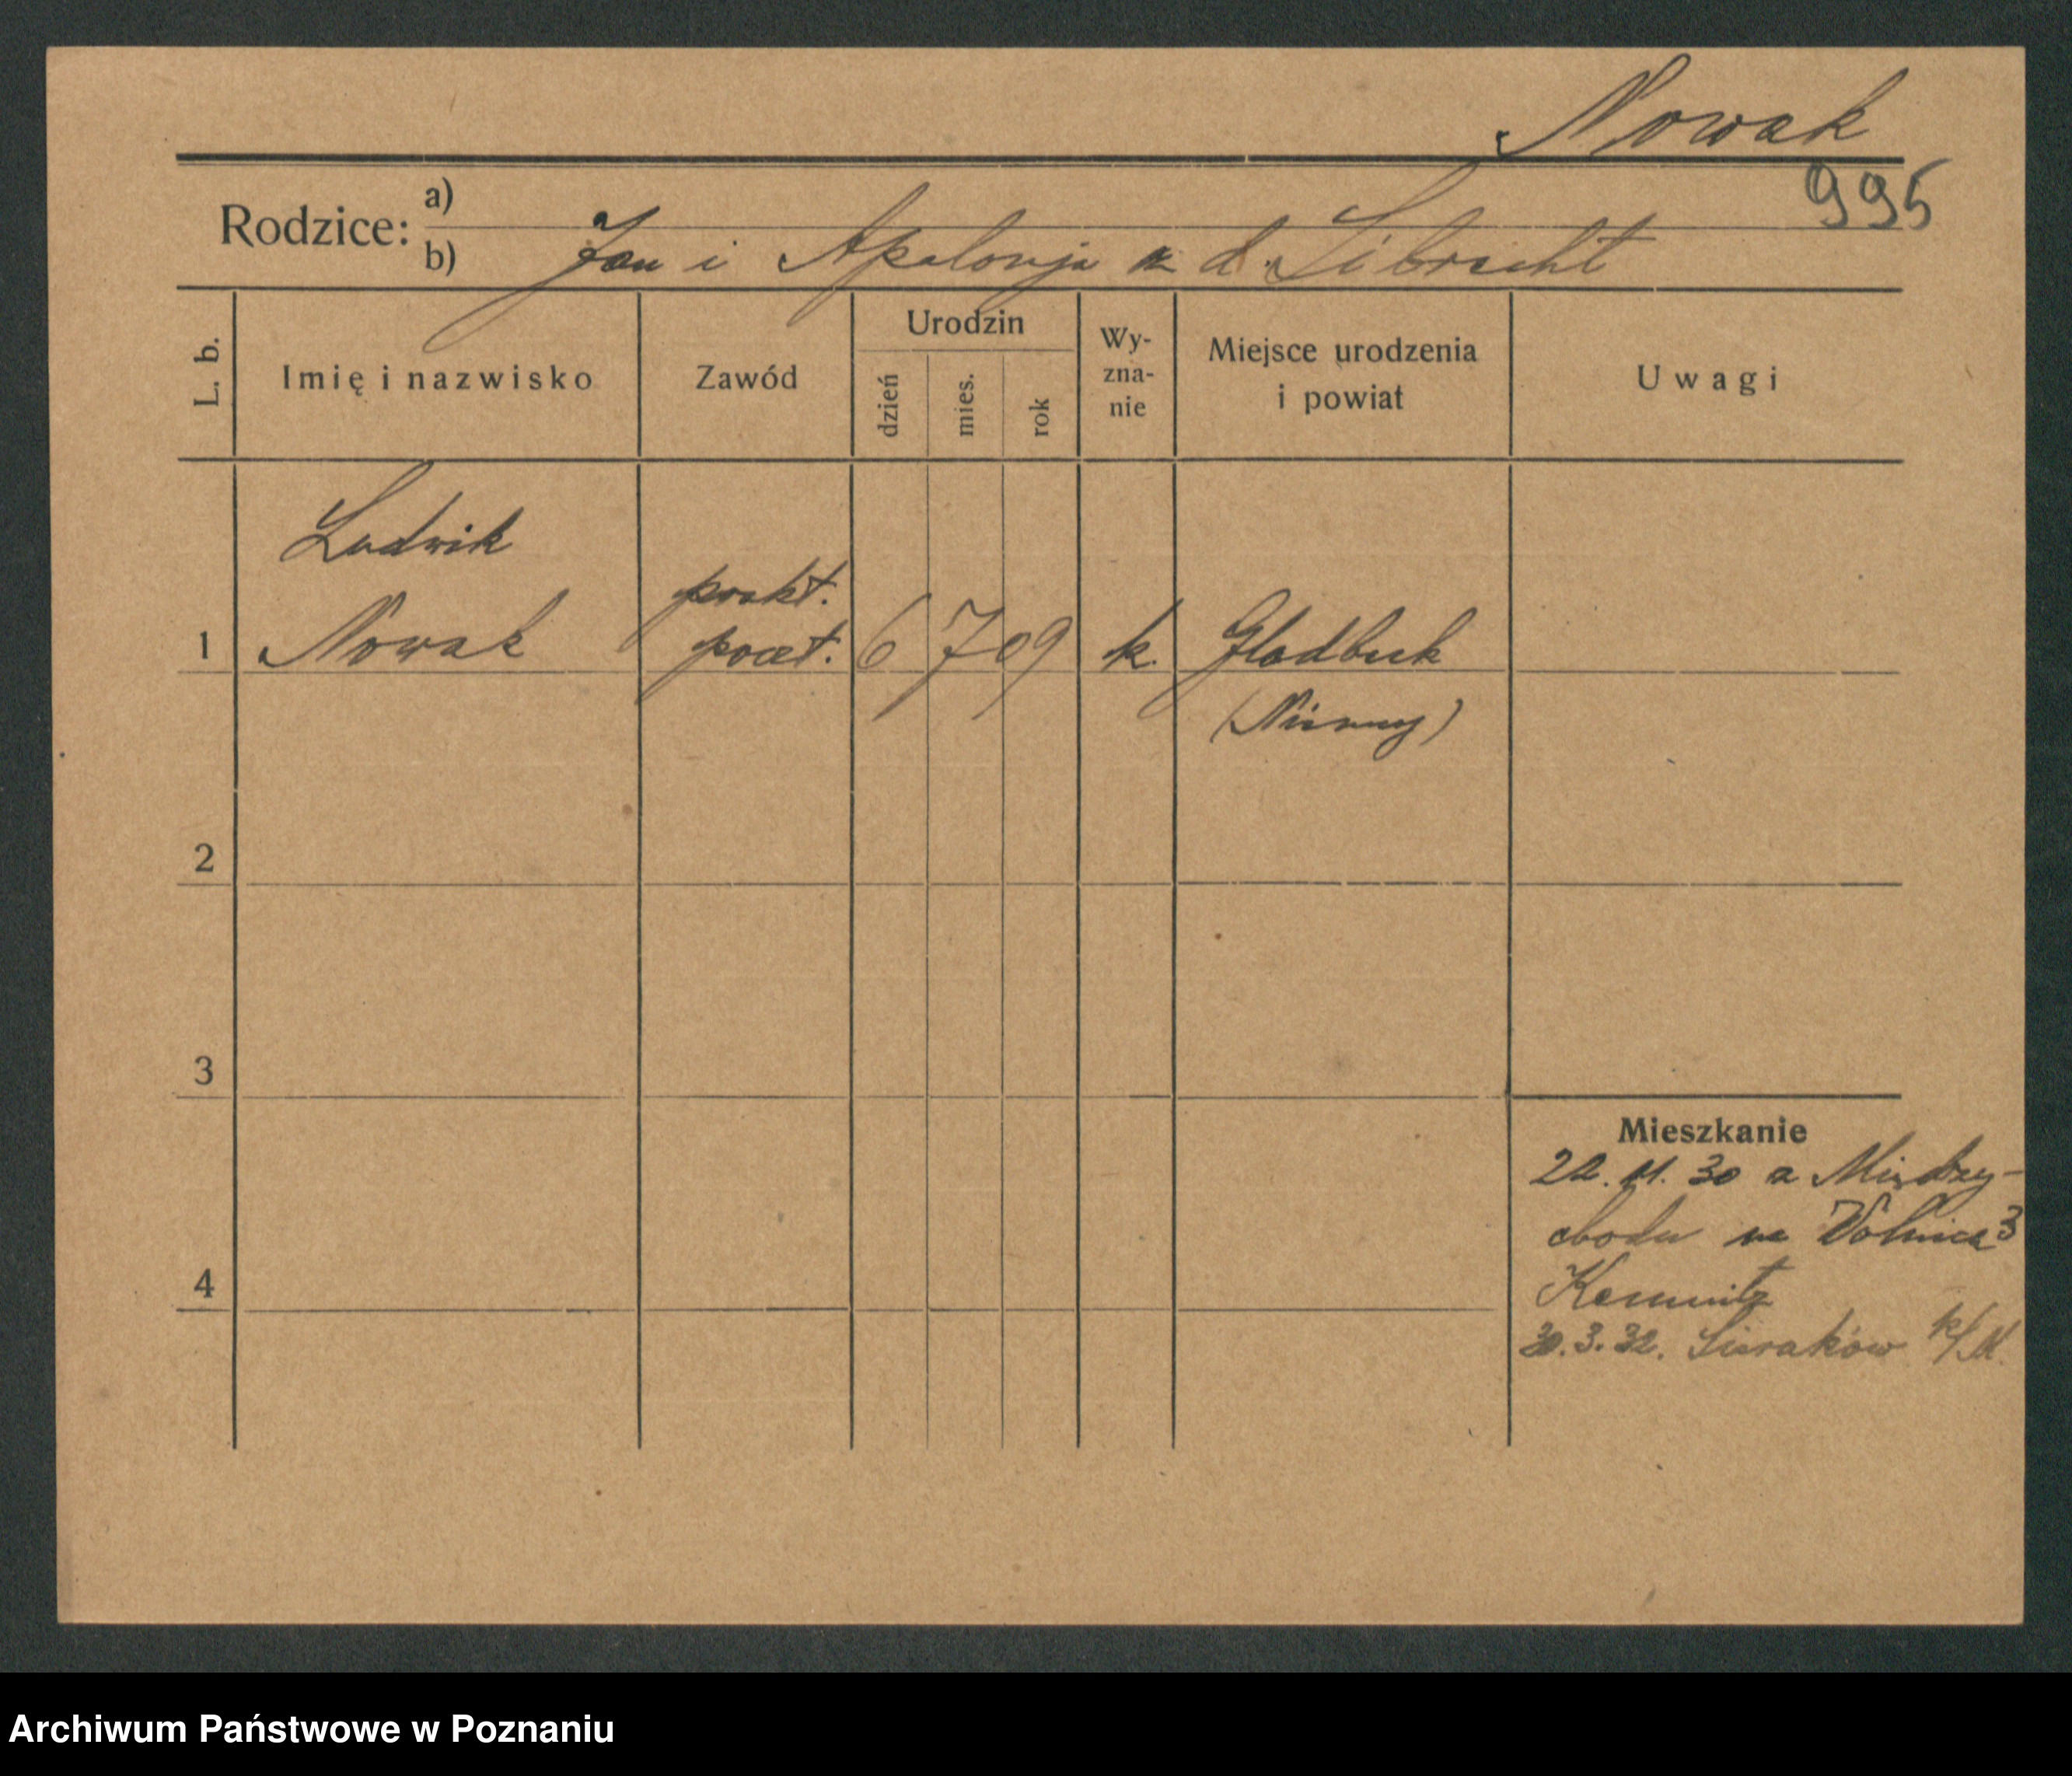 Nowak
995
Rodzice: a)
b) Jan i Apolonja z d. Librecht
L. b.
Imię i nazwisko
Zawód
Urodzin
dzień
mies.
rok
Wy-
zna-
nie
Miejsce urodzenia
i powiat
Uwagi
Ludwik
prakt.
1 Nowak poczt. 6 7 09 k. Gladbeck
(Niemcy)
2
3
4
Mieszkanie
22.11.30 z Między-
chodu na Wolnica 3
Kemnitz
30.3.32. Sieraków k/M.
Archiwum Państwowe w Poznaniu